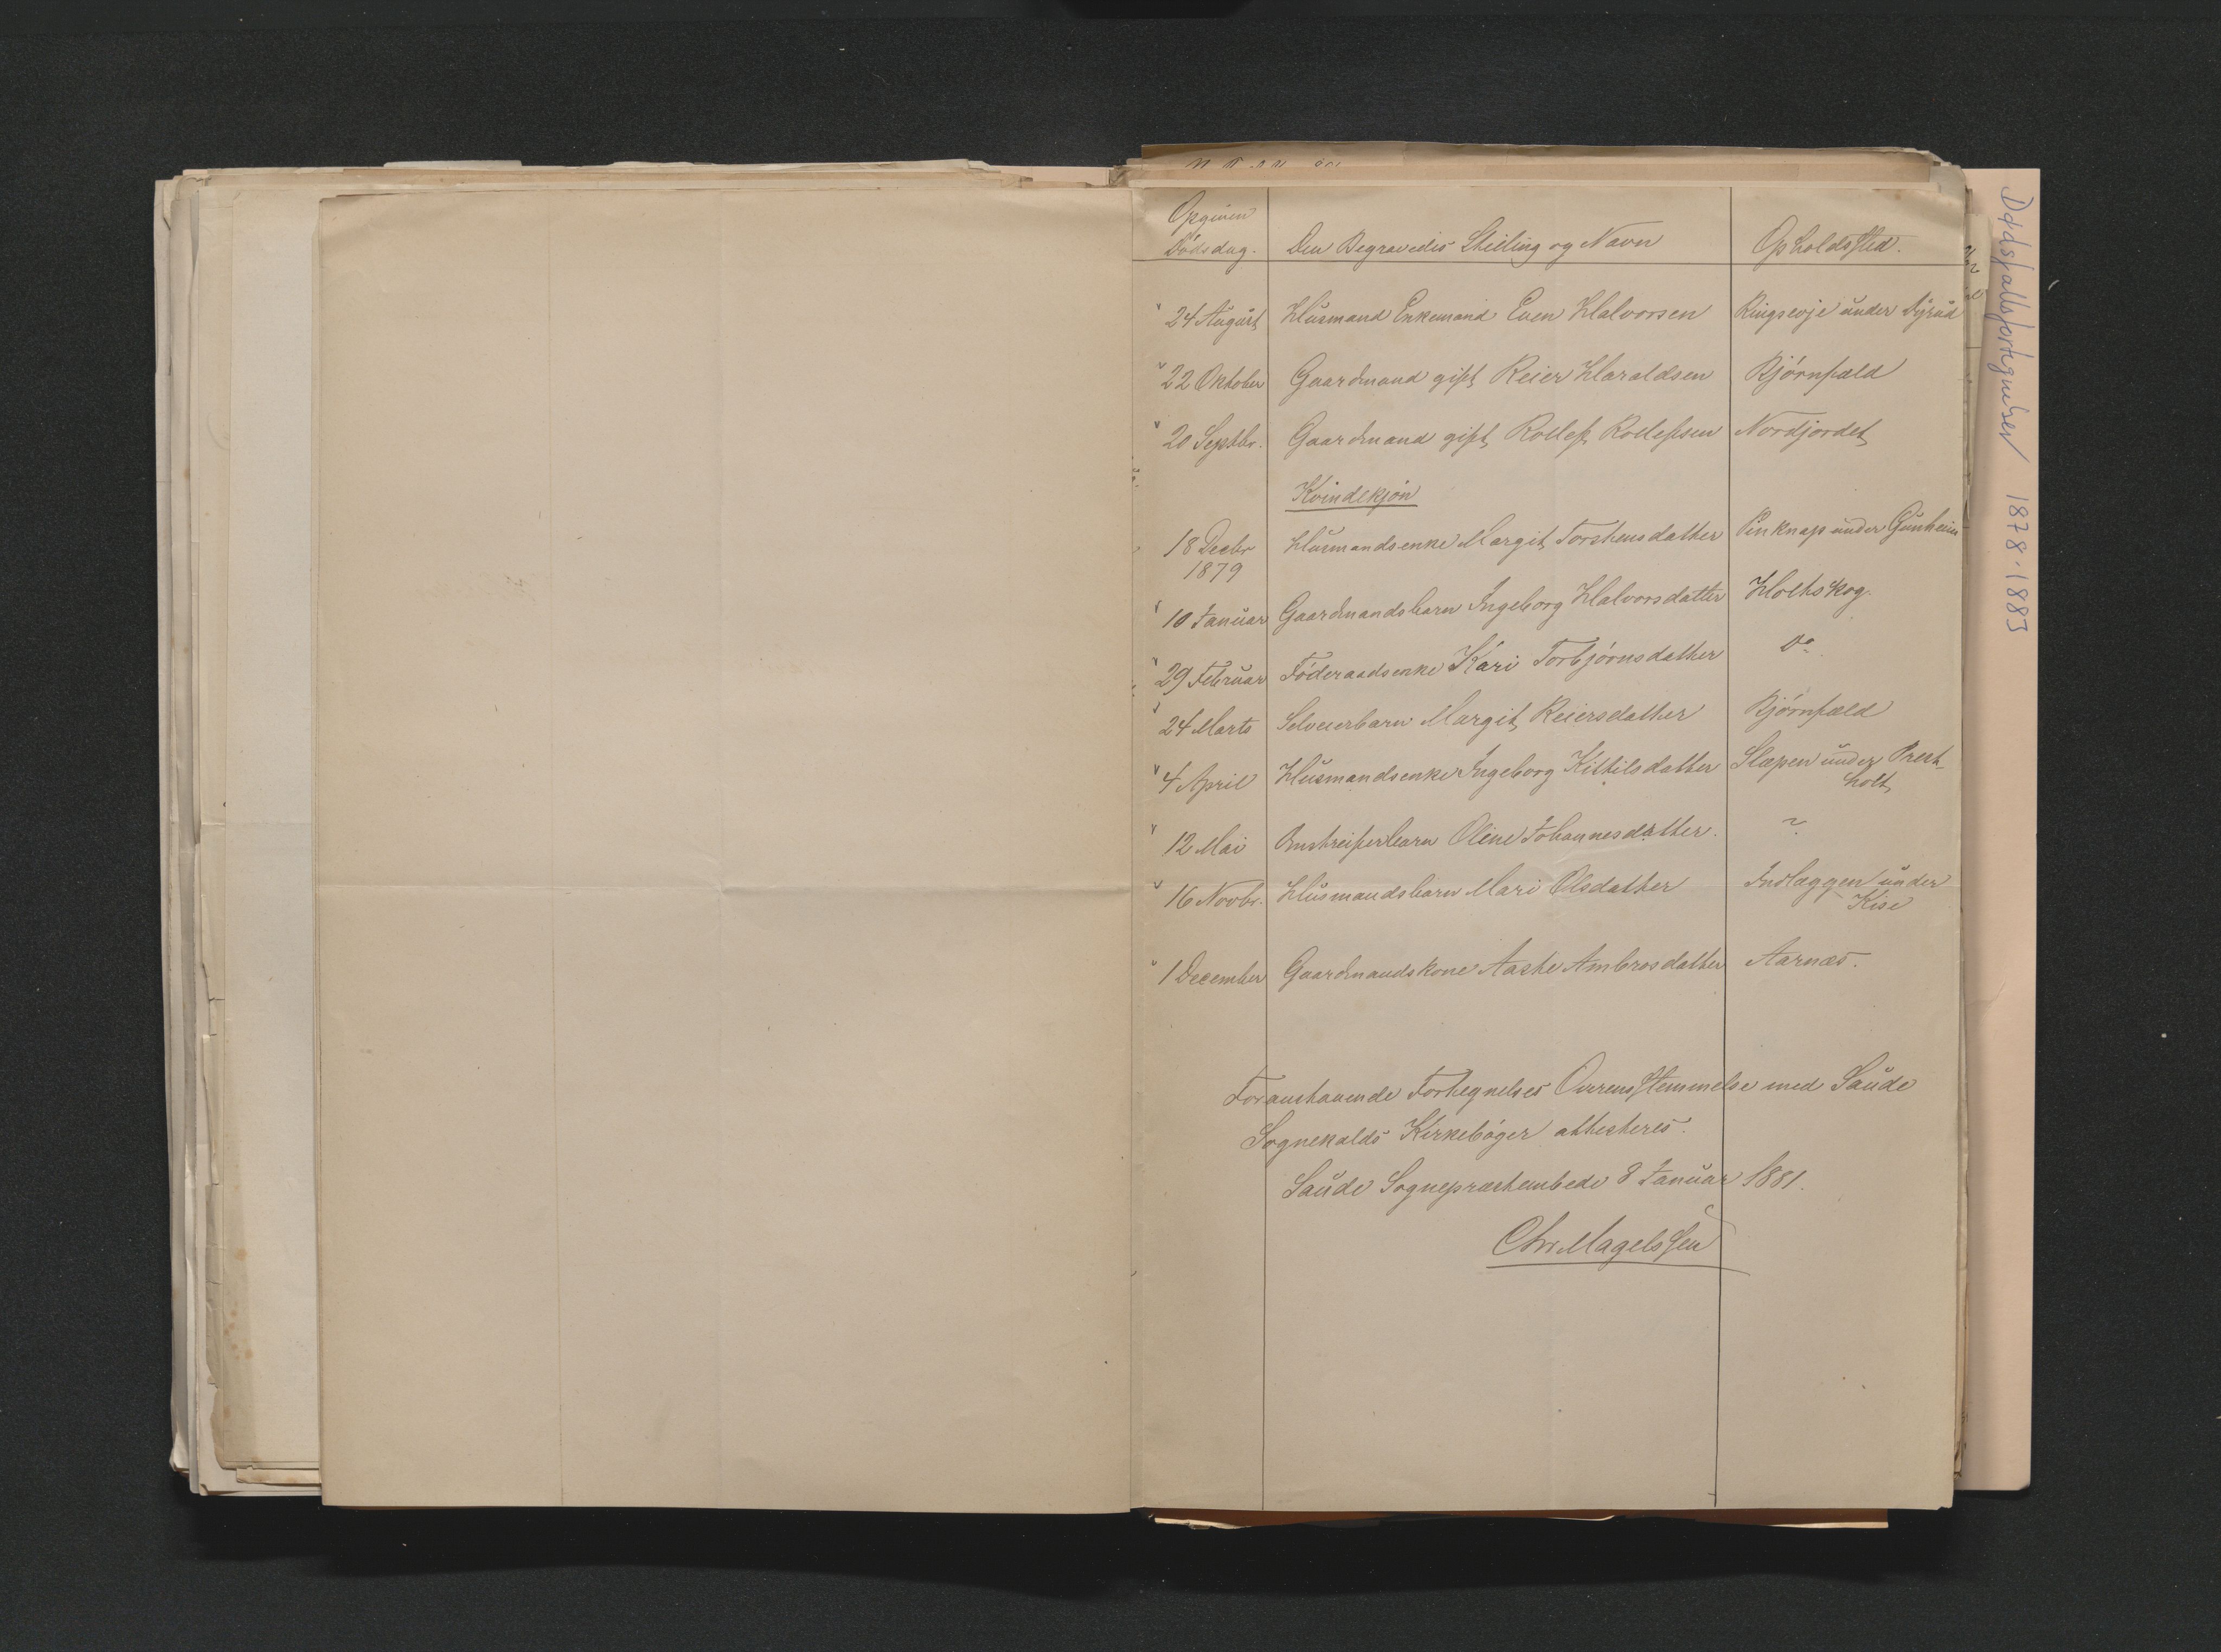 Opgiven
Dödsdag. Den Begravedes Stilling og Navn Opholdssted.
24 August Husmand Enkemand Even Halvorsen Ringsevje under Dyrud
22 Oktober Gaardmand gift Reier Haraldsen Bjørnfæld
20 Septbr. Gaardmand gift Rollef Rollefsen Nordjordet
Kvindekjön
18 Decbr Husmandsenke Margit Torstensdatter Pinknap under Gunheim
1879
10 Januar Gaardmandsbarn Ingeborg Halvorsdatter Holtskog.
29 Februar Föderaadsenke Kari Torbjörnsdatter Do.
24 Marts Selveierbarn Margit Reiersdatter Bjørnfæld
4 April Husmandsenke Ingeborg Kittilsdatter Slæpen under Prest-
holt
12 Mai Omstreiferbarn Oline Johannesdatter. ?
16 Novbr. Husmandsbarn Mari Olsdatter Indlæggen under
Kise
1 December Gaardmandskone Aaste Ambrosdatter Aarnæs.
Foranstaaende Fortegnelses Overensstemmelse med Saude
Sognekalds Kirkebøger attesteres.
Saude Sognepræstembede 8 Januar 1881.
Chr. Magelssen
Dødsfallsfortegnelser 1878-1883